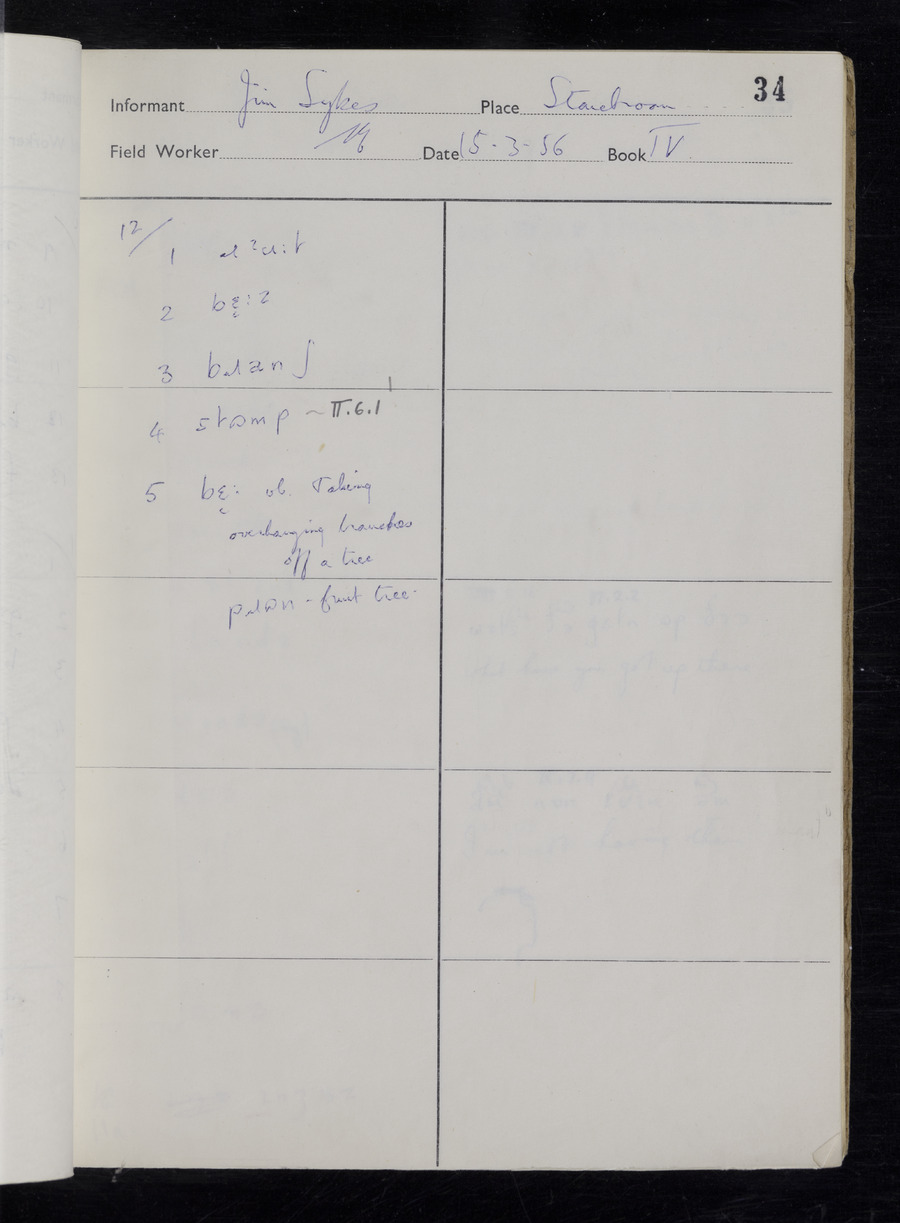 34
Informant Jim Sykes Place
Field Worker Date 15-3-56 Book IV
12/
1
2 bɛ̨:z
3
4 stɒmp ~ II.6.1
5 bɛ̨: vb. Taking
overhanging branches
off a tree
- fruit tree.